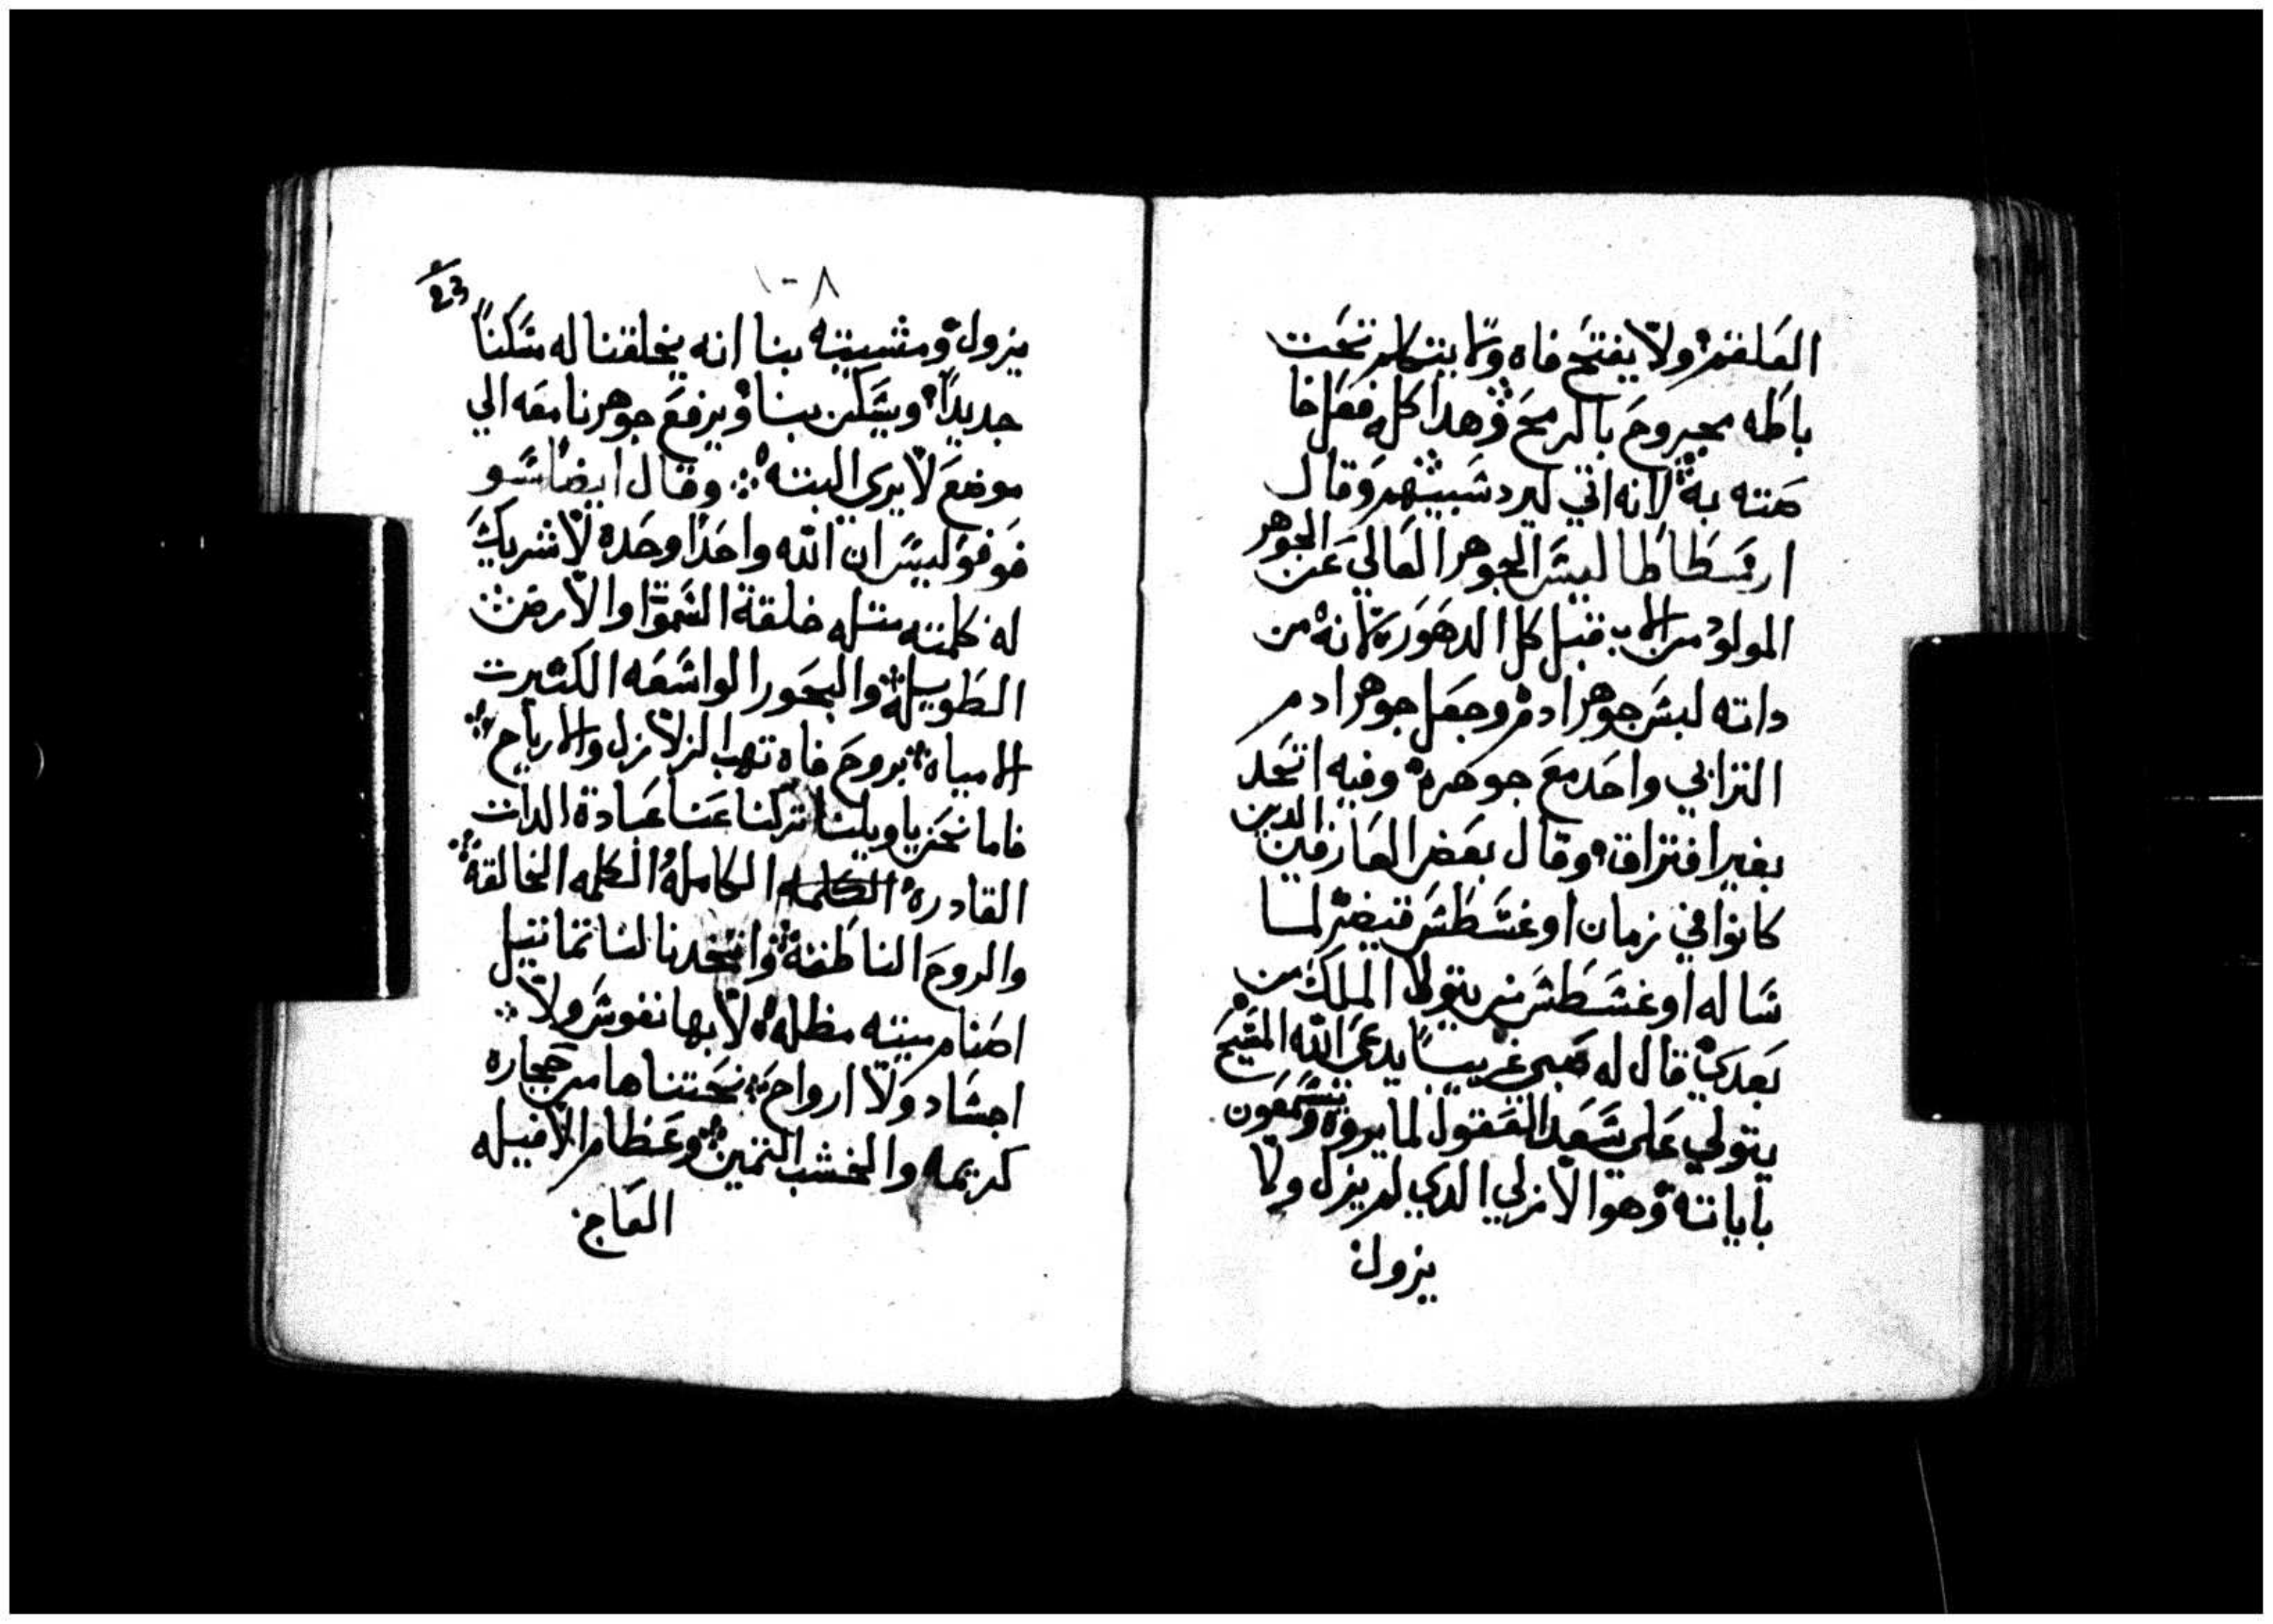 العلقم ولا يفتح فاه ولا يتكلم تحت
باطه مجروح بالرمح وهدا كله فعل خا
صته به لانه اتي ليرد شبيبتهم وقال
ارسطاطا ليس الجوهر العالي عن الجوهر
المولود من الاب قبل كل الدهور لانه من
داته لبس جوهر ادم وجعل جوهر ادم
الترابي واحد مع جوهره وفيه اتحد
بغير افتراق وقال بعض العارفين الدين
كانوا في زمان اوغسطس قيصر لما
ساله اوغسطس من يتولا الملك من
بعدك قال له صبي غريبا يدعى الله المسيح
يتولي على العقول لما يروه ويسمعون
باياته وهوا الازلي الدي لم يزل ولا
يزول
١٠٨
23
يزول ومشيته بنا انه يخلقنا له سكنا
جديدا ويسكن بنا ويرفع جوهرنا معه الي
موضع لا يرى البته وقال ايضا سو
فوقوليس ان الله واحدا وحده لا شريك
له كلمته مثله خلقة السموا والارض
الطويله والبحور الواسعه الكثيرت
الامياه بروح فاه تهب الزلازل والارياح
فاما نحن يا ويلنا تركنا عنا عبادة الدات
القادره الكلمه الكامله الكلمه الخالقة
والروح الناطقة واتخدنا لنا تماتيل
اصنام ميته مظله لا بها نفوس ولا
اجساد ولا ارواح نحتناها من حجاره
كريمه والخشب التمين وعظام الافيله
العاج